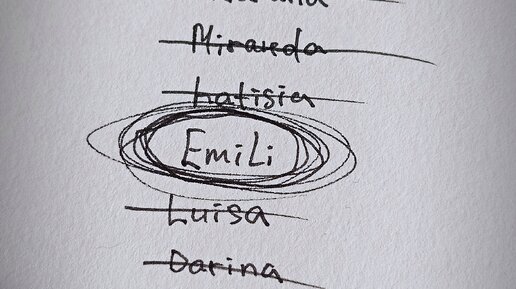 Miranda
Latisia
EmiLi
Luisa
Darina